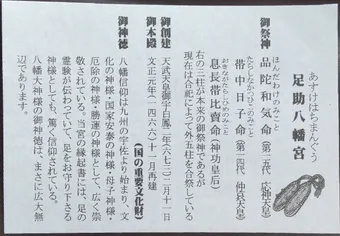 あすけはちまんぐう
足助八幡宮
御祭神
ほんだわけのみこと
品陀和気命(第十五代 応神天皇)
たらしなかつひこのみこと
帯中日子命(第十四代 仲哀天皇)
おきながたらしひめのみこと
息長帯比賣命(神功皇后)
右の三柱が本来の御祭神であるが
現在は合祀によって外五柱を合祭している
御創建 天武天皇御宇白鳳二年(六七三)二月十一日
御本殿 文正元年(一四六六)十一月再建
(国の重要文化財)
御神徳
八幡信仰は九州の宇佐より始まり、文
化の神様・国家安泰の神様・母子神様・
厄除の神様・勝運の神様として、広く崇
敬されている。当宮の縁起書には、足の
霊験が伝わっていて、足をお守り下さる
神様としても、篤く信仰されている。
八幡大神様の御神徳は、まさに広大無
辺であります。